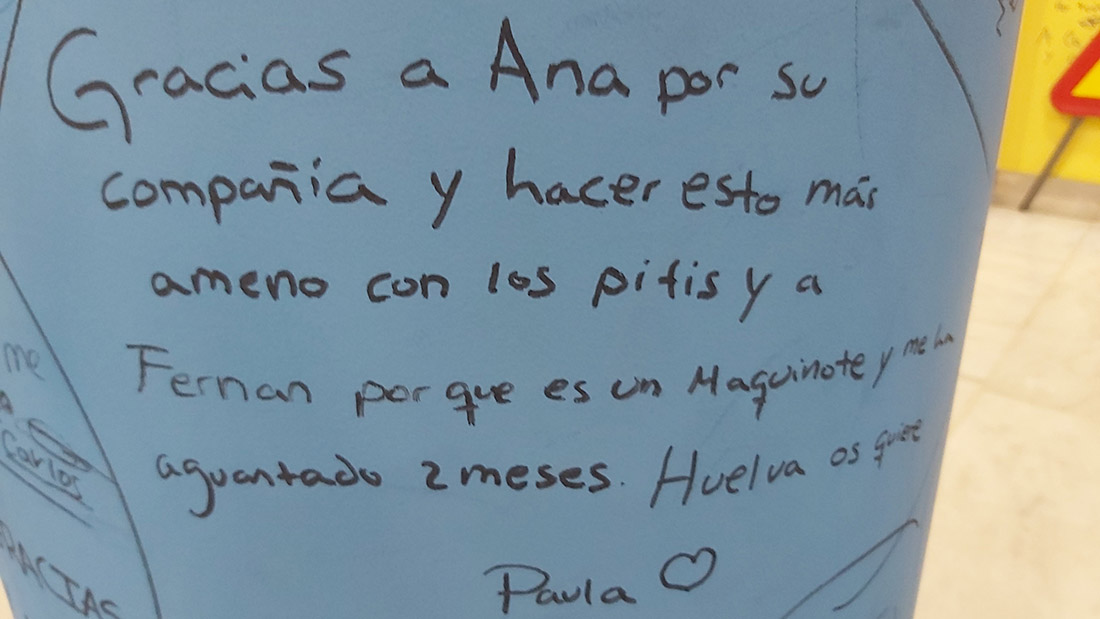 Gracias a Ana por su
compañia y hacer esto más
ameno con los pitis y a
Fernan por que es un Maquinote y me ha
aguantado 2 meses. Huelva os quiere
Paula ♡
me
Carlos
GRACIAS